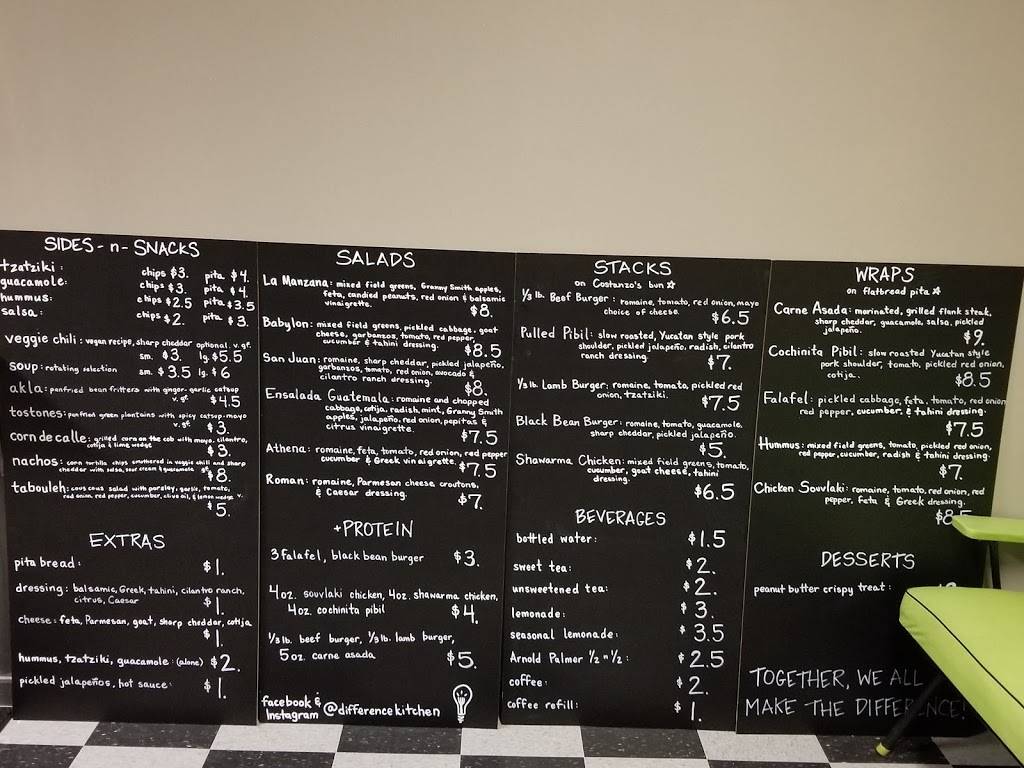 SIDES - n - SNACKS
tzatziki: chips $3. pita $4.
guacamole: chips $3. pita $4.
hummus: chips $2.5 pita $3.5
salsa: chips $2. pita $3.
veggie chili: vegan recipe, sharp cheddar optional v. gf.
sm. $3. lg. $5.5
soup: rotating selection sm. $3.5 lg. $6
akla: panfried bean fritters with ginger-garlic catsup
v. gf $4.5
tostones: panfried green plantains with spicy catsup-mayo
v. gf $3.
corn de calle: grilled corn on the cob with mayo, cilantro,
cotija & lime wedge $3.
nachos: corn tortilla chips smothered in veggie chili and sharp
cheddar with salsa, sour cream & guacamole gf $8.
tabouleh: cous cous salad with parsley, garlic, tomato,
red onion, red pepper, cucumber, olive oil, & lemon wedge v.
$5.
EXTRAS
pita bread: $1.
dressing: balsamic, Greek, tahini, cilantro ranch,
citrus, Caesar $1.
cheese: feta, Parmesan, goat, sharp cheddar, cotija
$1.
hummus, tzatziki, guacamole: (alone) $2.
pickled jalapeños, hot sauce: $1.
SALADS
La Manzana: mixed field greens, Granny Smith apples,
feta, candied peanuts, red onion & balsamic
vinaigrette. $8.
Babylon: mixed field greens, pickled cabbage, goat
cheese, garbanzos, tomato, red pepper,
cucumber & tahini dressing. $8.5
San Juan: romaine, sharp cheddar, pickled jalapeño,
garbanzos, tomato, red onion, avocado &
cilantro ranch dressing. $8.
Ensalada Guatemala: romaine and chopped
cabbage, cotija, radish, mint, Granny Smith
apples, jalapeño, red onion, pepitas &
citrus vinaigrette. $7.5
Athena: romaine, feta, tomato, red onion, red pepper
cucumber & Greek vinaigrette. $7.5
Roman: romaine, Parmesan cheese croutons,
& Caesar dressing. $7.
+PROTEIN
3 falafel, black bean burger $3.
4 oz. souvlaki chicken, 4 oz. shawarma chicken,
4 oz. cochinita pibil $4.
1/3 lb. beef burger, 1/3 lb. lamb burger,
5 oz. carne asada $5.
facebook &
Instagram @differencekitchen
STACKS
on Costanzo's bun
1/3 lb. Beef Burger: romaine, tomato, red onion, mayo
choice of cheese. $6.5
Pulled Pibil: slow roasted, Yucatan style pork
shoulder, pickled jalapeño, radish, cilantro
ranch dressing $7.
1/3 lb. Lamb Burger: romaine, tomato, pickled red
onion, tzatziki. $7.5
Black Bean Burger: romaine, tomato, guacamole,
sharp cheddar, pickled jalapeño. $5.
Shawarma Chicken: mixed field greens, tomato,
cucumber, goat cheese, tahini
dressing. $6.5
BEVERAGES
bottled water: $1.5
sweet tea: $2.
unsweetened tea: $2.
lemonade: $3.
seasonal lemonade: $3.5
Arnold Palmer 1/2 n 1/2: $2.5
coffee: $2.
coffee refill: $1.
WRAPS
on flatbread pita
Carne Asada: marinated, grilled flank steak,
sharp cheddar, guacamole, salsa, pickled
jalapeño. $9.
Cochinita Pibil: slow roasted Yucatan style
pork shoulder, tomato, pickled red onion,
cotija. $8.5
Falafel: pickled cabbage, feta, tomato, red onion
red pepper, cucumber, & tahini dressing.
$7.5
Hummus: mixed field greens, tomato, pickled red onion,
red pepper, cucumber, radish & tahini dressing.
$7.
Chicken Souvlaki: romaine, tomato, red onion, red
pepper, feta & Greek dressing.
$8.5
DESSERTS
peanut butter crispy treat:
TOGETHER, WE ALL
MAKE THE DIFFERENCE!